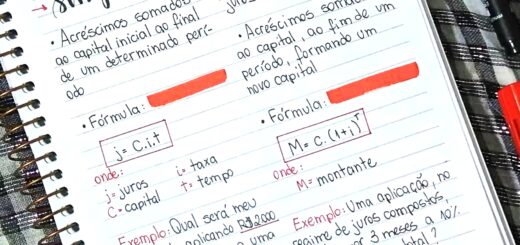 • Acréscimos somados
ao capital inicial ao final
de um determinado perí-
odo
• Fórmula:
j = C.i.t
onde:
j = juros
i = taxa
C = capital
t = tempo
Exemplo: Qual será meu
aplicando R$2000
uma
• Acréscimos
ao capital, ao fim de um
período, formando um
novo capital
• Fórmula:
M = C.(1+i)
onde:
M = montante
Exemplo: Uma aplicação, no
regime de juros compostos,
por 3 meses a 10%